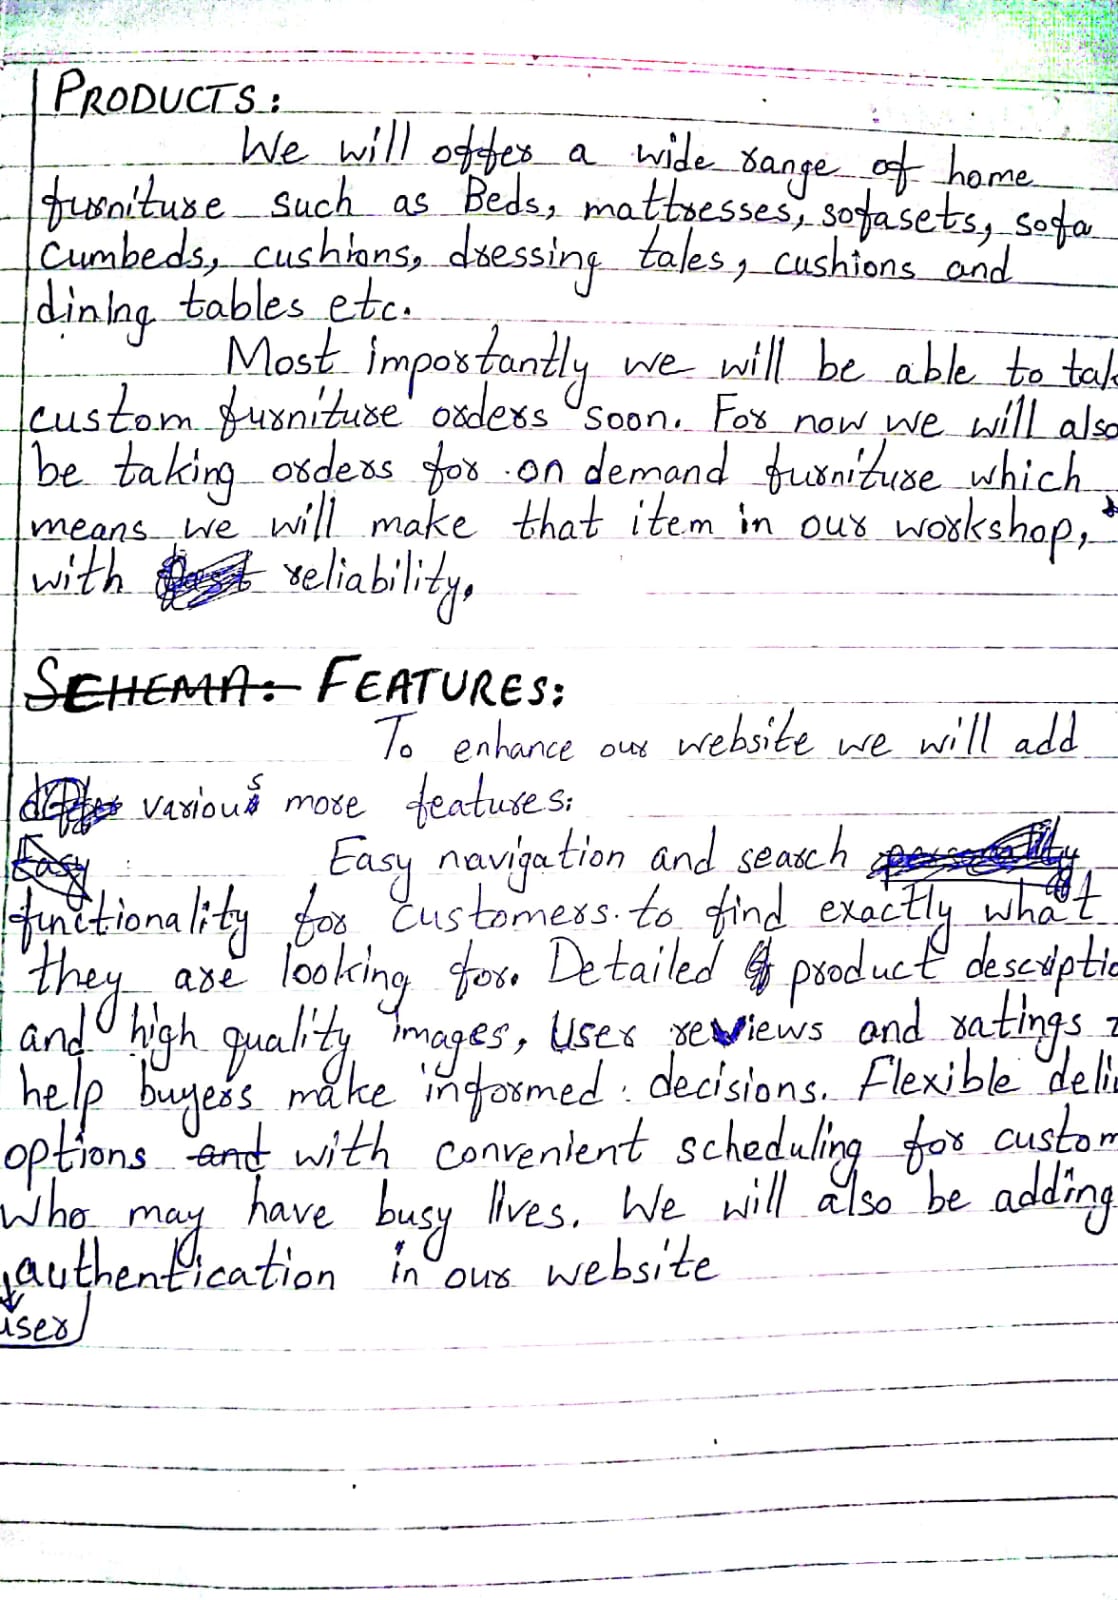 PRODUCTS:
We will offer a wide range of home
furniture such as Beds, mattresses, sofasets, sofa
cumbeds, cushions, dressing tales, cushions and
dining tables etc.
Most importantly we will be able to tak
custom furniture orders soon. For now we will also
be taking orders for on demand furniture which
means we will make that item in our workshop,
with reliability.
SCHEMA: FEATURES:
To enhance our website we will add
various more features:
Easy Easy navigation and search
functionality for customers to find exactly what
they are looking for. Detailed product descriptio
and high quality images, User reviews and ratings
help buyers make informed decisions. Flexible deli
options and with convenient scheduling for custom
who may have busy lives. We will also be adding
authentication in our website
user